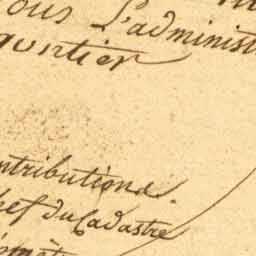 ous L'administ
quartier
ntributions.
hef du Cadastre